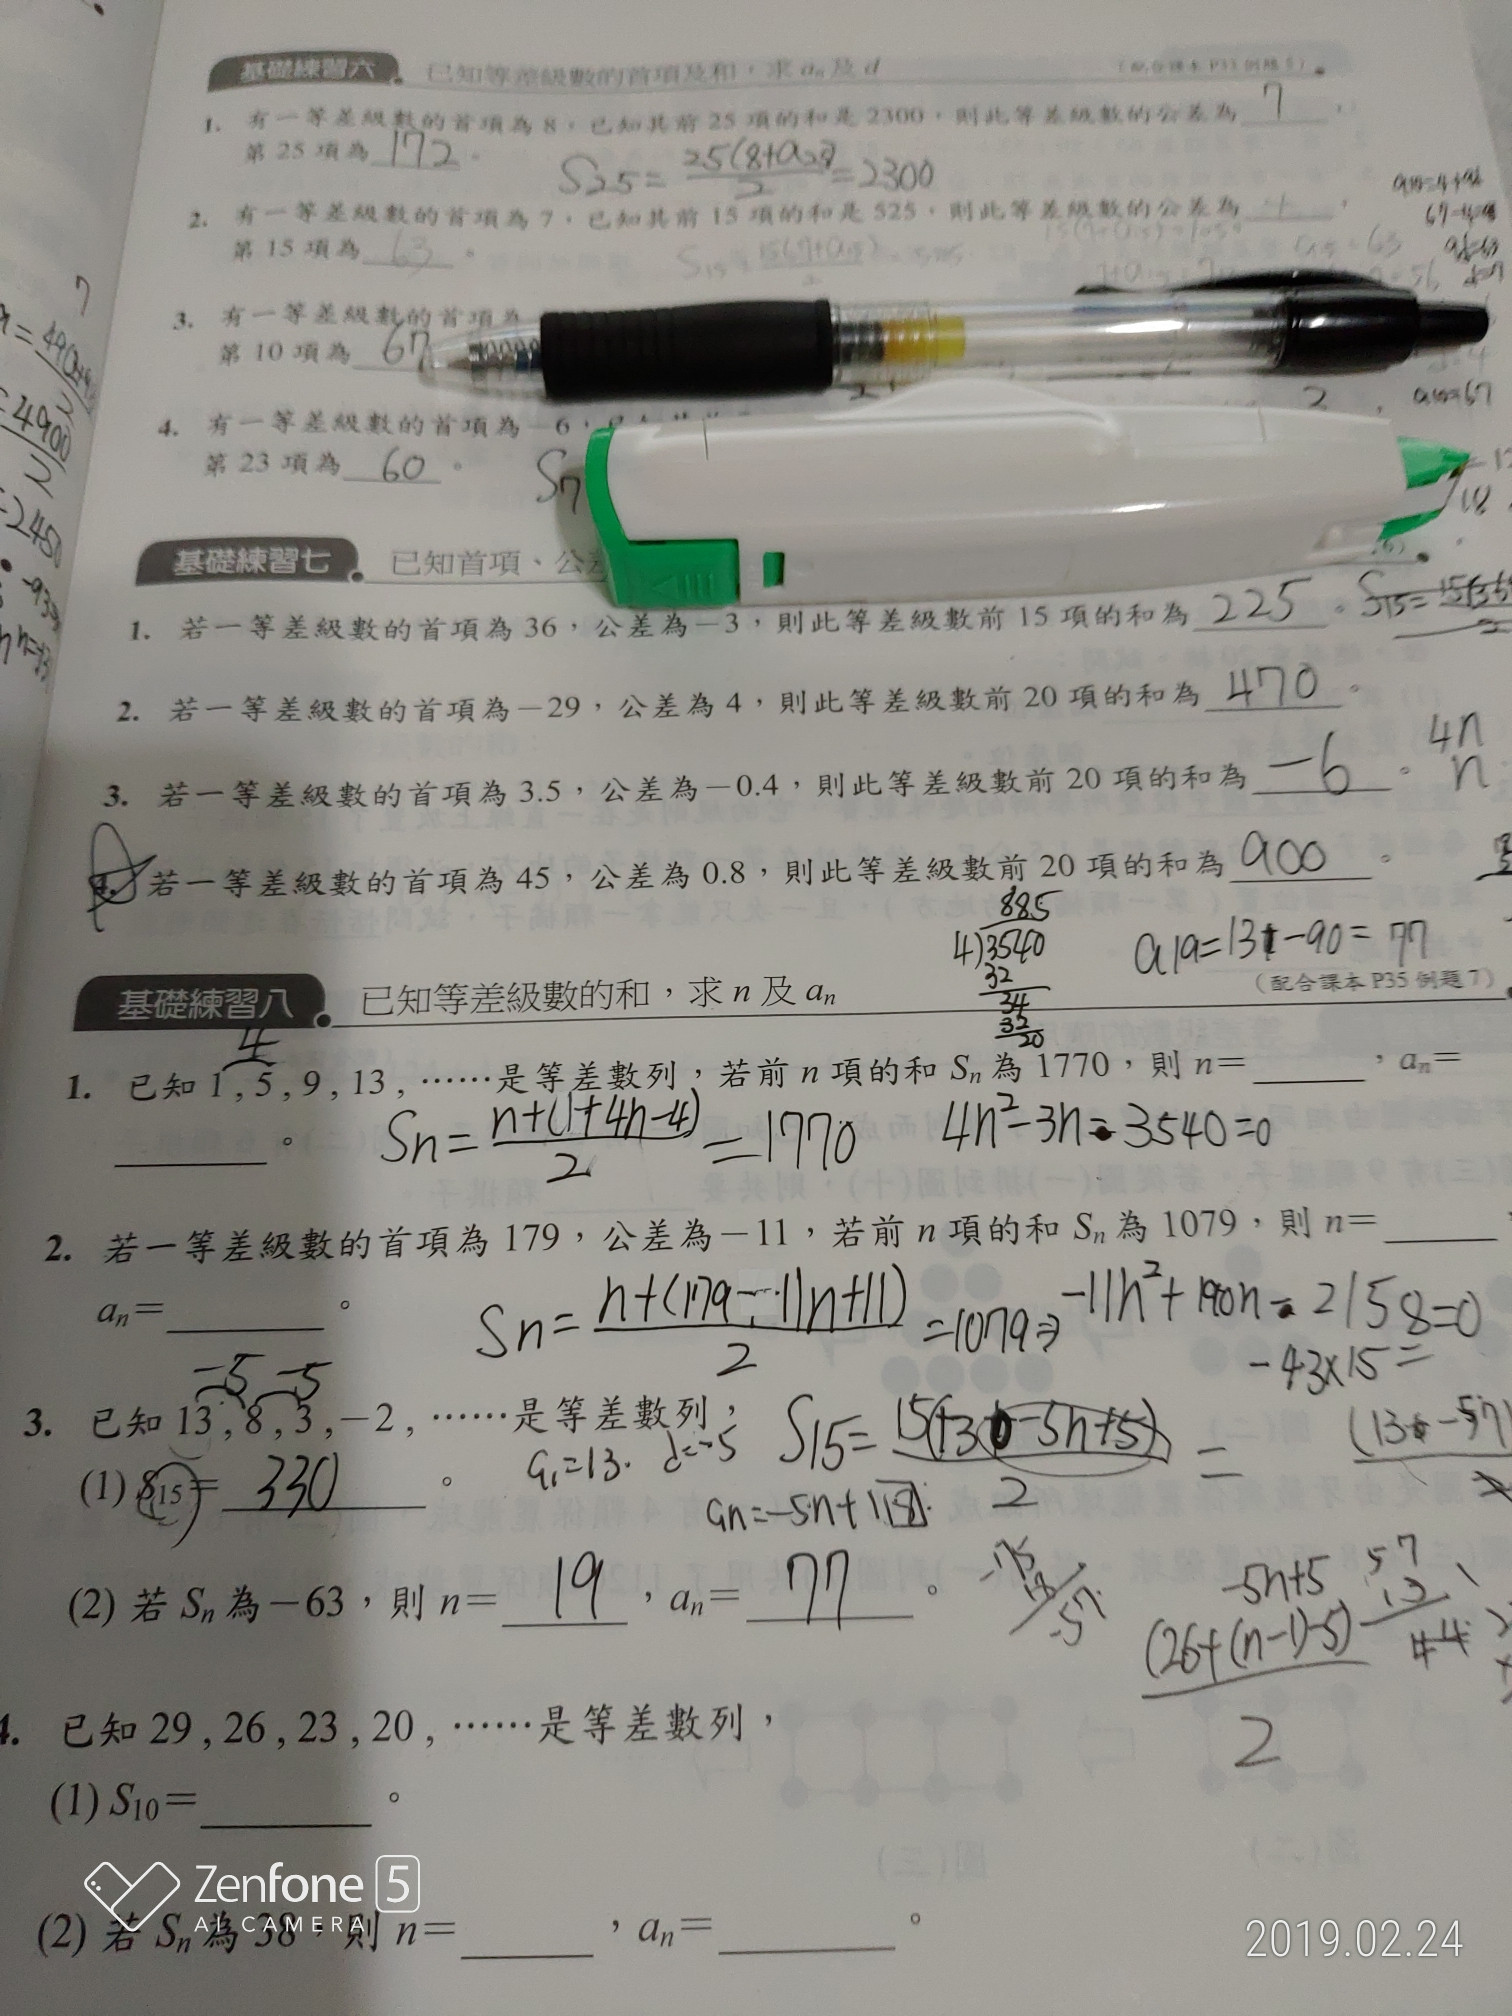 基礎練習六 已知等差級數的首項及和,求 an 及 d (配合課本 P33 例題5)
1. 有一等差級數的首項為 8,已知其前 25 項的和是 2300,則此等差級數的公差為 7,
第 25 項為 172。
S25= 25(8+a25)/2 =2300
2. 有一等差級數的首項為 7,已知其前 15 項的和是 525,則此等差級數的公差為 4,
第 15 項為 63。
3. 有一等差級數的首項為
第 10 項為 67
4. 有一等差級數的首項為-6,
2,
第 23 項為 60。
S7
基礎練習七 已知首項、公差
1. 若一等差級數的首項為 36,公差為-3,則此等差級數前 15 項的和為 225。
2. 若一等差級數的首項為-29,公差為 4,則此等差級數前 20 項的和為 470。
4n
3. 若一等差級數的首項為 3.5,公差為-0.4,則此等差級數前 20 項的和為 -6。
n
4. 若一等差級數的首項為 45,公差為 0.8,則此等差級數前 20 項的和為 900。
885
4)3540
32
34
32
20
a19=131-90=77
基礎練習八 已知等差級數的和,求 n 及 an (配合課本 P35 例題7)
4
1. 已知 1 , 5 , 9 , 13 , ……是等差數列,若前 n 項的和 Sn 為 1770,則 n=____,an=
____。
Sn= n+(1+4n-4)/2 =1770
4n²-3n-3540=0
2. 若一等差級數的首項為 179,公差為-11,若前 n 項的和 Sn 為 1079,則 n=____,
an=____。
Sn= n+(179-11n+11)/2 =1079⇒ -11n²+190n-2158=0
-43×15=
-5 -5
3. 已知 13 , 8 , 3 , -2 , ……是等差數列,
a1=13. d=-5
(1) S15= 330。
an=-5n+18
(2) 若 Sn 為-63,則 n= 19,an= 77。
-5n+5
(26+(n-1)-5)
2
4. 已知 29 , 26 , 23 , 20 , ……是等差數列,
(1) S10=____。
(2) 若 Sn 為 38,則 n=____,an=____。
Zenfone 5
AI CAMERA
2019.02.24